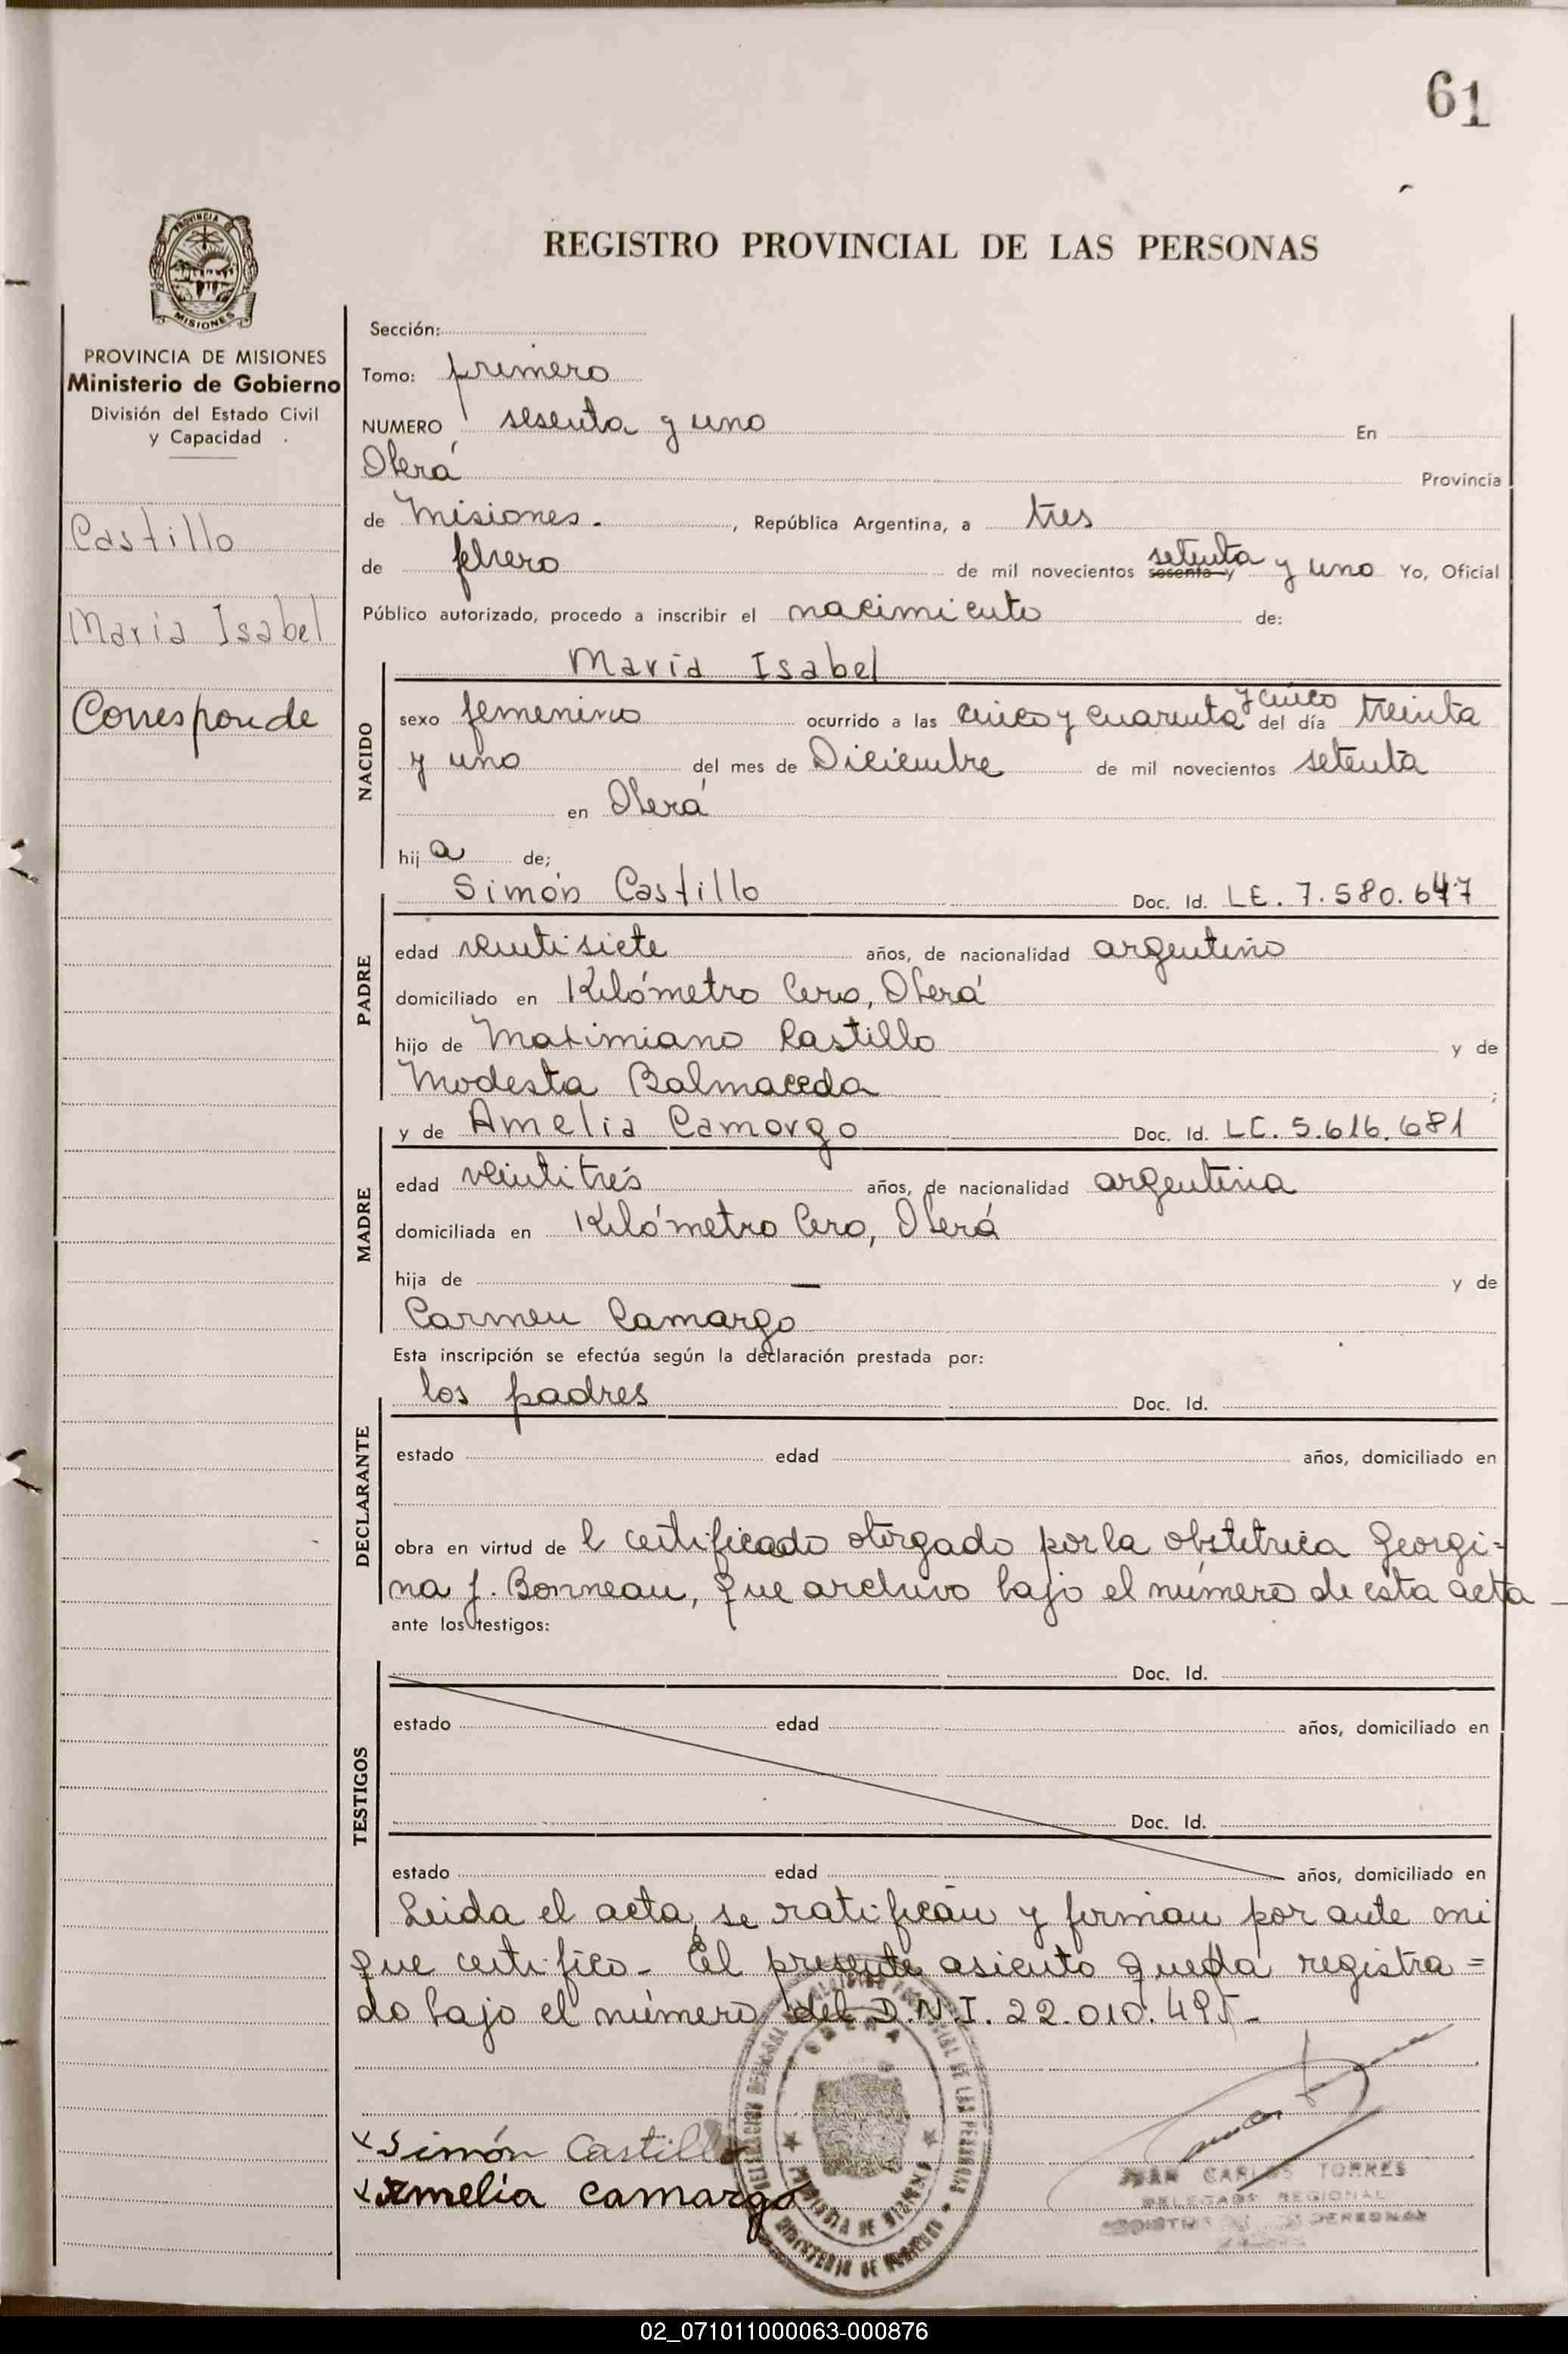 61
PROVINCIA DE
MISIONES
REGISTRO PROVINCIAL DE LAS PERSONAS
PROVINCIA DE MISIONES
Ministerio de Gobierno
División del Estado Civil
y Capacidad
Castillo
María Isabel
Corresponde
Sección:
Tomo: primero
NUMERO sesenta y uno En
Oberá Provincia
de Misiones. , República Argentina, a tres
de febrero de mil novecientos sesenta y setenta y uno Yo, Oficial
Público autorizado, procedo a inscribir el nacimiento de:
María Isabel
NACIDO
sexo femenino ocurrido a las cinco y cuarenta y cinco del día treinta
y uno del mes de Diciembre de mil novecientos setenta
en Oberá
hija de;
PADRE
Simón Castillo Doc. Id. LE. 7.580.647
edad veintisiete años, de nacionalidad argentino
domiciliado en Kilómetro Cero, Oberá
hijo de Maximiano Castillo y de
Modesta Balmaceda ;
MADRE
y de Amelia Camargo Doc. Id. LC. 5.616.681
edad veintitrés años, de nacionalidad argentina
domiciliada en Kilómetro Cero, Oberá
hija de — y de
Carmen Camargo
Esta inscripción se efectúa según la declaración prestada por:
DECLARANTE
los padres Doc. Id.
estado edad años, domiciliado en
obra en virtud de l certificado otorgado por la obstetrica Georgi-
na J. Bonneau, que archivo bajo el número de esta acta
ante los testigos:
TESTIGOS
Doc. Id.
estado edad años, domiciliado en
Doc. Id.
estado edad años, domiciliado en
Leida el acta, se ratifican y firman por ante mi
que certifico.- El presente asiento queda registra=
do bajo el número del D.N.I. 22.010.495.-
Simón Castillo
Amelia Camargo
OBERA
PROVINCIA DE MISIONES
MINISTERIO DE GOBIERNO
JUAN CARLOS TORRES
DELEGADO REGIONAL
02_071011000063-000876